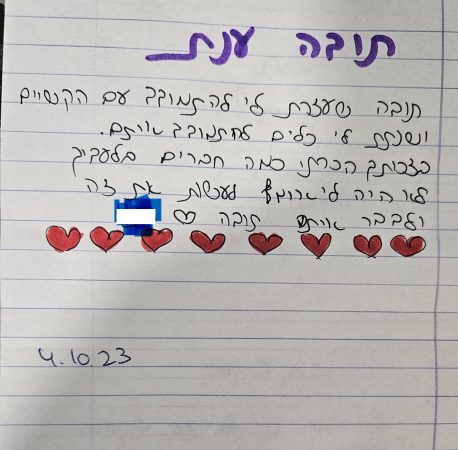 תודה ענת
תודה שעזרת לי להתמודד עם הקשיים
ושנתת לי כלים להתמודד איתם.
בזכותך הכרתי כמה חברים בלעדיך
לא היה לי אומץ לעשות את זה
ולדבר איתם תודה ♡
4.10.23